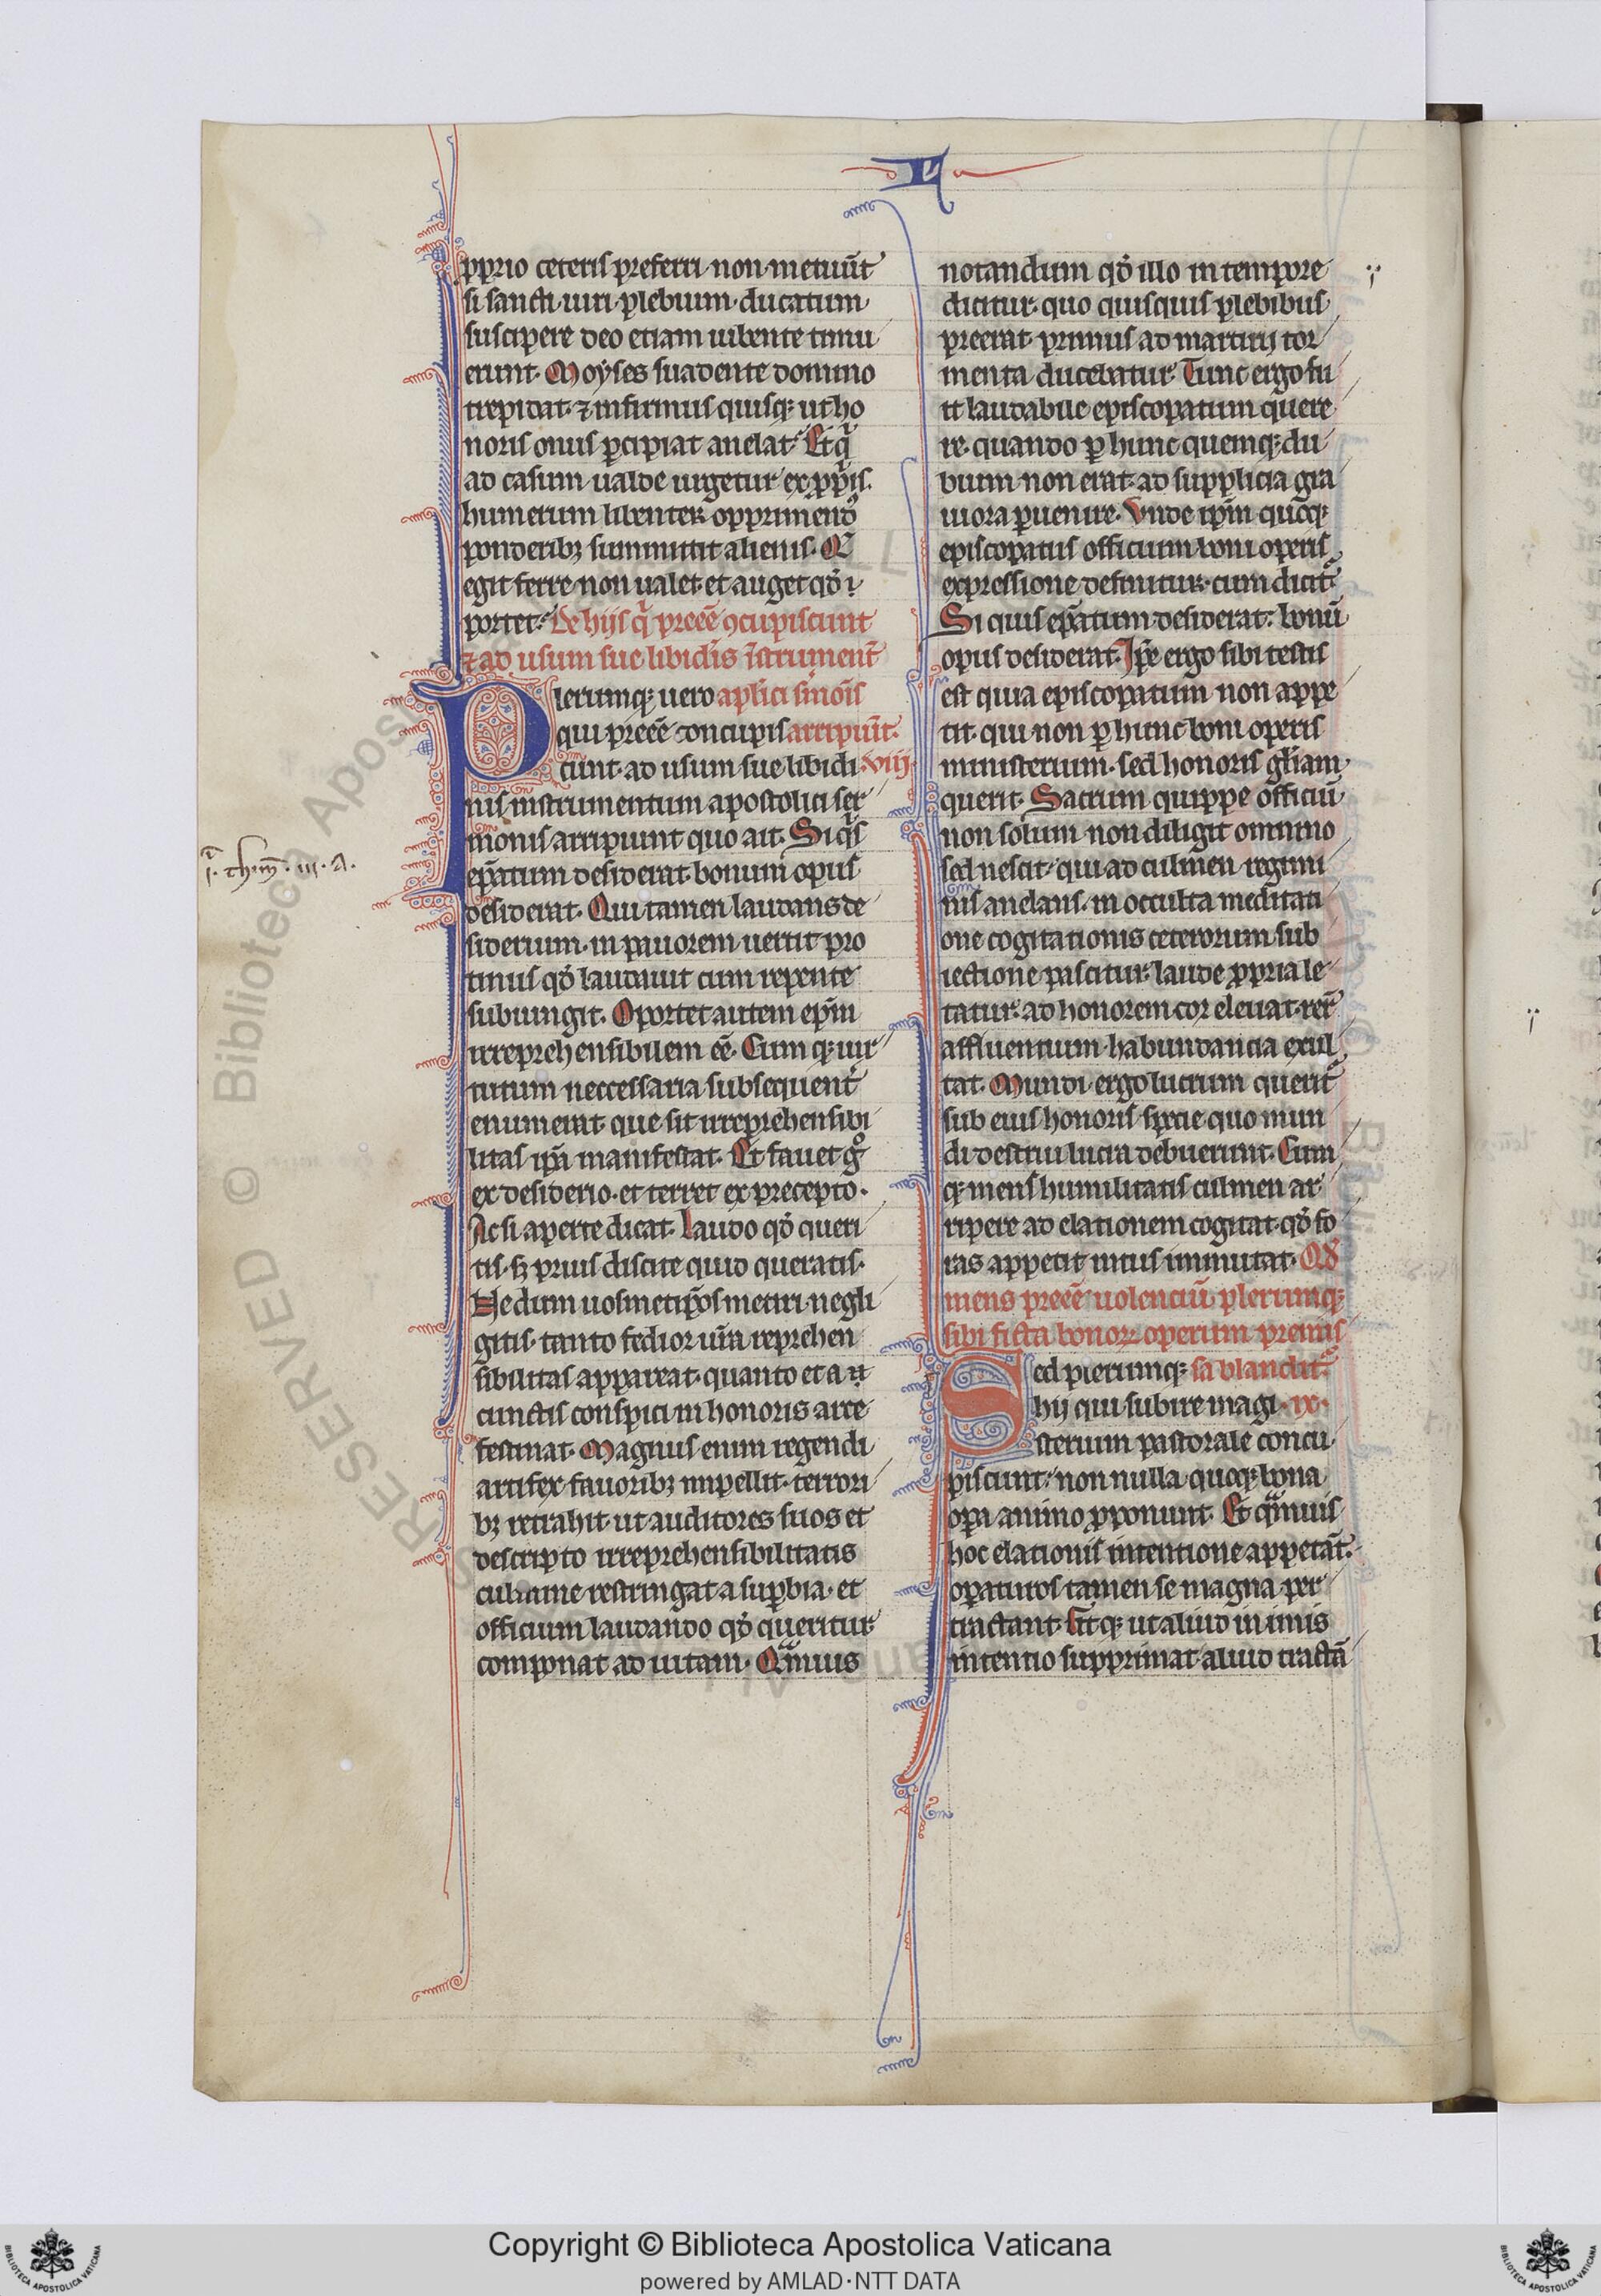 L
ꝓprio ceteris preferri non metuūt
si sancti uiri plebium ducatum
suscipere deo etiam iubente timu
erunt. Moyses suadente domino
trepidat. ⁊ infirmus quisqꝫ ut ho
noris onus ꝑcipiat anelat. Et qͥ
ad casum ualde urgetur ex ꝓpͥis.
humerum libenter opprimendꝰ
ponderibꝫ summittit alienis. Q
egit ferre non ualet et auget qđ ı
portet. De hijs qͥ preeē ꝯcupiscunt
⁊ ad usum sue libidīs īstrumentͫ
Plerumqꝫ uero aplici smōis
qui preeē concupis arripiūt.
cunt ad usum sue libidi viij.
nis instrumentum apostolici ser
monis arripiunt quo ait. Si qͥs
ep̄atum desiderat bonum opus
desiderat. Qui tamen laudans de
siderium. in pauorem uertit pro
tinus qđ laudauit cum repente
subiungit. Oportet autem ep̄m
irreprehensibilem eē. Cum qꝫ uir
tutum neccessaria subsequentͥ
enumerat que sit irreprehensibi
litas ip̄a manifestat. Et fauet gͦ
ex desiderio. et terret ex precepto.
Ac si aperte dicat. laudo qđ queri
tis. sꝫ prius discite quid queratis.
Ne dum uosmetip̄os metiri negli
gitis. tanto fedior ur̄a reprehen
sibilitas appareat. quanto et a ıı
cunctis conspici in honoris arce
festinat. Magnus enim regendi
artifex fauoribꝫ impellit. terrori
bꝫ retrahit. ut auditores suos et
descripto irreprehensibilitatis
culmine restringat a suꝑbia. et
officium laudando qđ queritur
componat ad uitam. Qͣmuis
j. thīm̄. iij. A.
notandum qđ illo in tempore
dicitur. quo quisquis plebibus
preerat primus ad martirij tor
menta ducebatur. Tunc ergo fu
it laudabile episcopatum quere
re. quando ꝑ hunc quemqꝫ du
bium non erat ad supplicia gra
uiora ꝑuenire. Unde ip̄m quoqꝫ
episcopatus officium boni operis
expressione definitur. cum dicitͬ
Si quis ep̄atum desiderat. bonū
opus desiderat. Ip̄e ergo sibi testis
est quia episcopatum non appe
tit. qui non ꝑ hunc boni operis
ministerium. sed honoris gl̄iam
querit. Sacrum quippe officiū
non solum non diligit omnino
sed nescit. qui ad culmen regimi
nis anelans. in occulta meditati
one cogitationis ceterorum sub
iectione pascitur. laude ꝓpria le
tatur. ad honorem cor eleuat. rer̄
affluentium habundancia exul
tat. Mundi ergo lucrum queritͬ
sub eius honoris specie quo mun
di destrui lucra debuerunt. Cum
qꝫ mens humilitatis culmen ar
ripere ad elationem cogitat. qđ fo
ras appetit intus immutat. Qđ
mens preeē uolenciū plerumqꝫ
sibi ficta bonoꝝ operum premis
Sed plerumqꝫ sa blanditͬ
hij qui subire magi ix.
sterium pastorale concu
piscunt. non nulla quoqꝫ bona
opa animo ꝓponunt. Et qͣmuis
hoc elationis intentione appetāt.
operaturos tamen se magna per
tractant. Fit qꝫ ut aliud in imis
intentio supprimat. aliud tractā
Copyright © Biblioteca Apostolica Vaticana
powered by AMLAD·NTT DATA